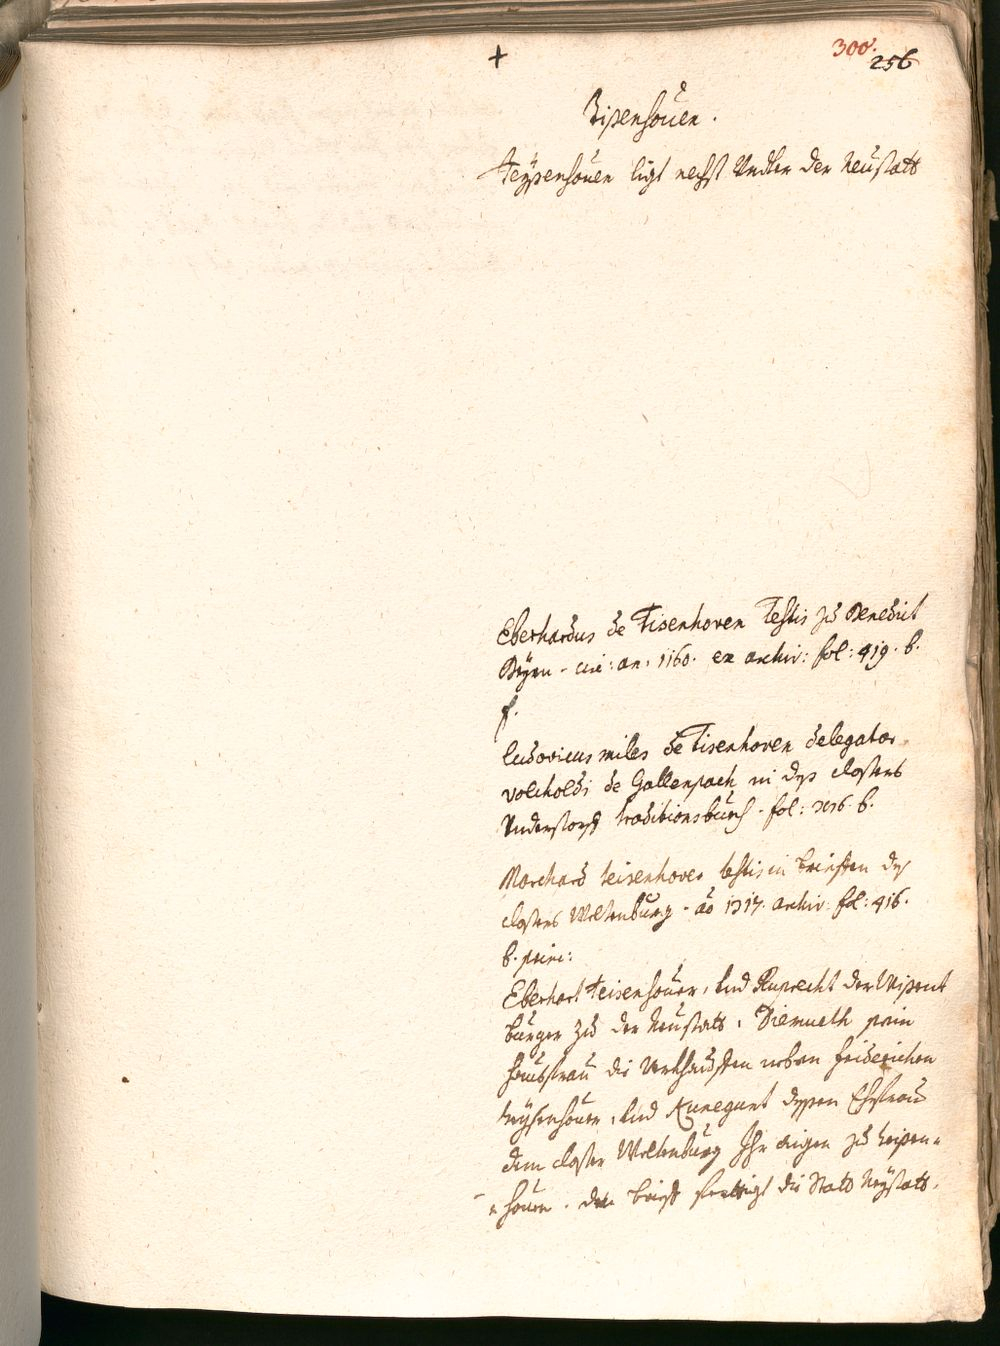 +
300.
256
Tisenhouen.
Teysenhouen ligt nechst Undter der Neustatt
Eberhardus de Tisenhoven Testis zu Benedict
Beyrn - circ: an: 1160. ex archiv: fol: 419. b.
f.
Ludovicus miles de Tisenhoven delegator
volcholdi de Gallenpach in dess closters
Understorff traditionsbuech - fol: b.
Marchard teisenhover testis in brieffen dess
closters Weltenburg - ao 1317. archiv: fol: 416.
b. prin:
Eberhart Teisenhouer, Und Ruprecht der
burger zu der Neustatt, Diemueth sein
hausfrau die Verkhaufften neben friderichen
teysenhouer, Und Kunegunt dessen Ehefrau
dem closter Weltenburg Ihr aigen zu teisen=
=houen. den brieff ferttigt die Statt Neystatt.